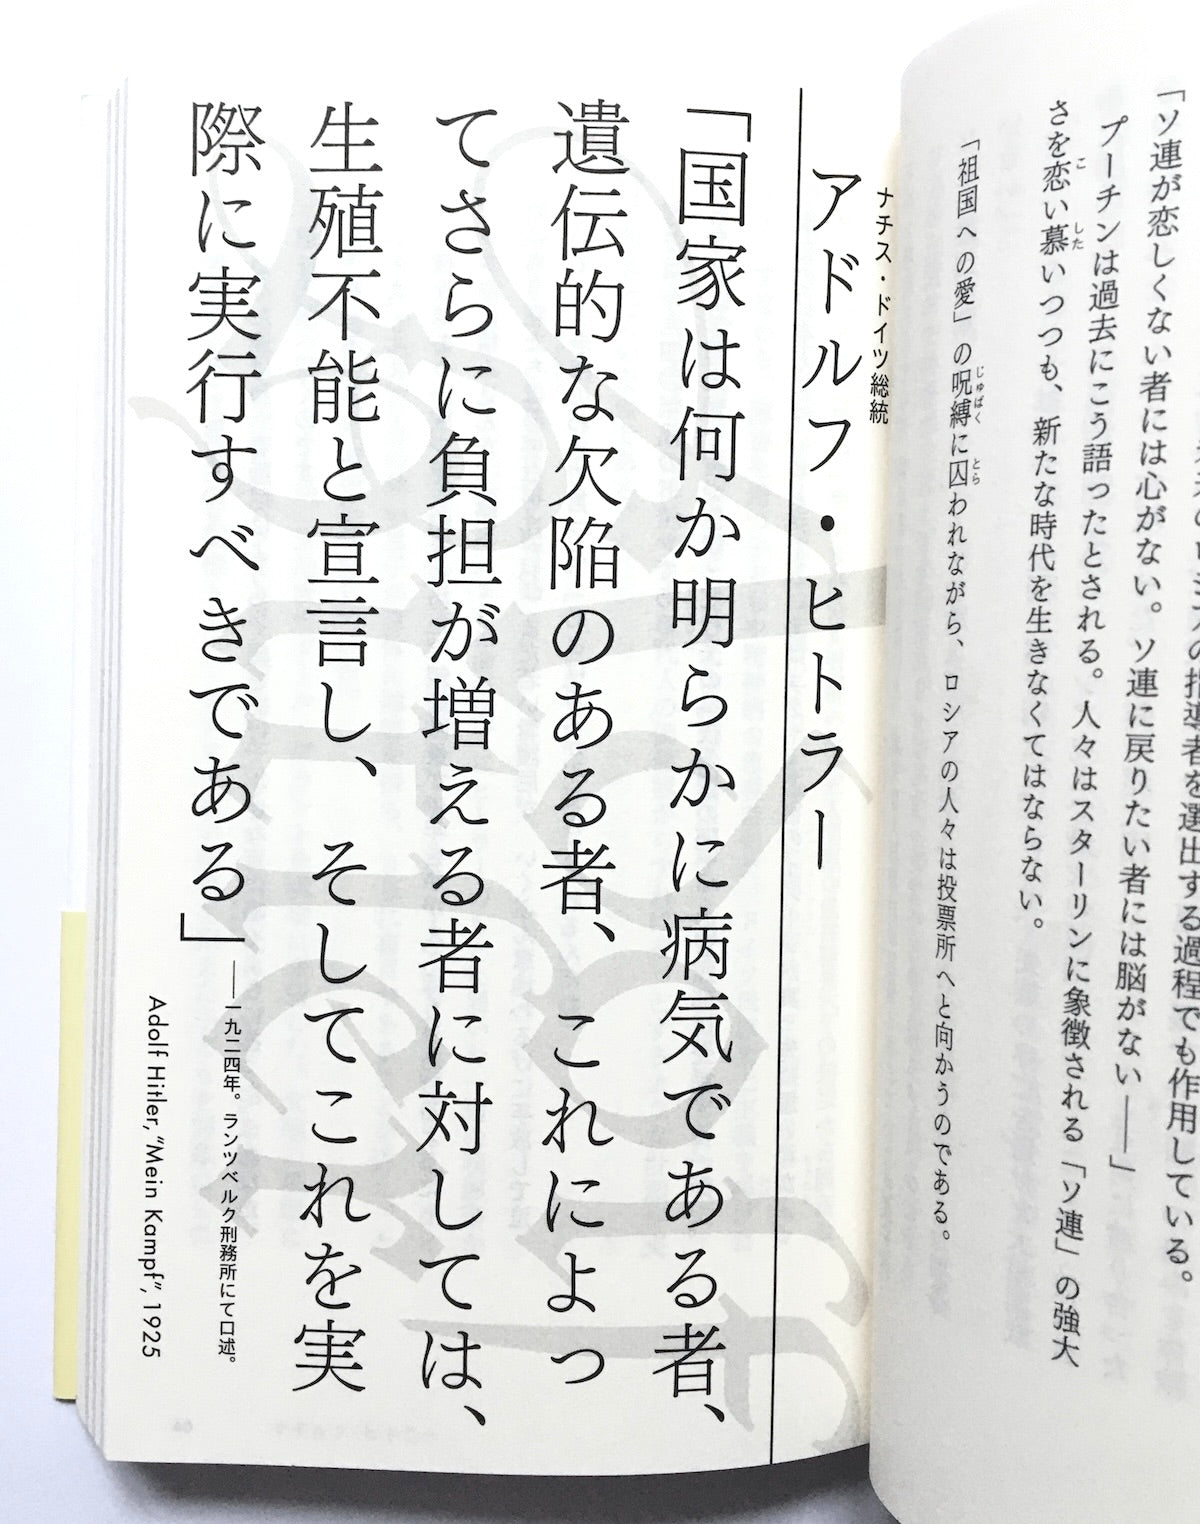 「ソ連が恋しくない者には心がない。ソ連に戻りたい者には脳がない――」
プーチンは過去にこう語ったとされる。人々はスターリンに象徴される「ソ連」の強大
さを恋い慕いつつも、新たな時代を生きなくてはならない。
「祖国への愛」の呪縛に囚われながら、ロシアの人々は投票所へと向かうのである。
ナチス・ドイツ総統
アドルフ・ヒトラー
「国家は何か明らかに病気である者、
遺伝的な欠陥のある者、これによっ
てさらに負担が増える者に対しては、
生殖不能と宣言し、そしてこれを実
際に実行すべきである」
――一九二四年。ランツベルク刑務所にて口述。
Adolf Hitler, “Mein Kampf”, 1925